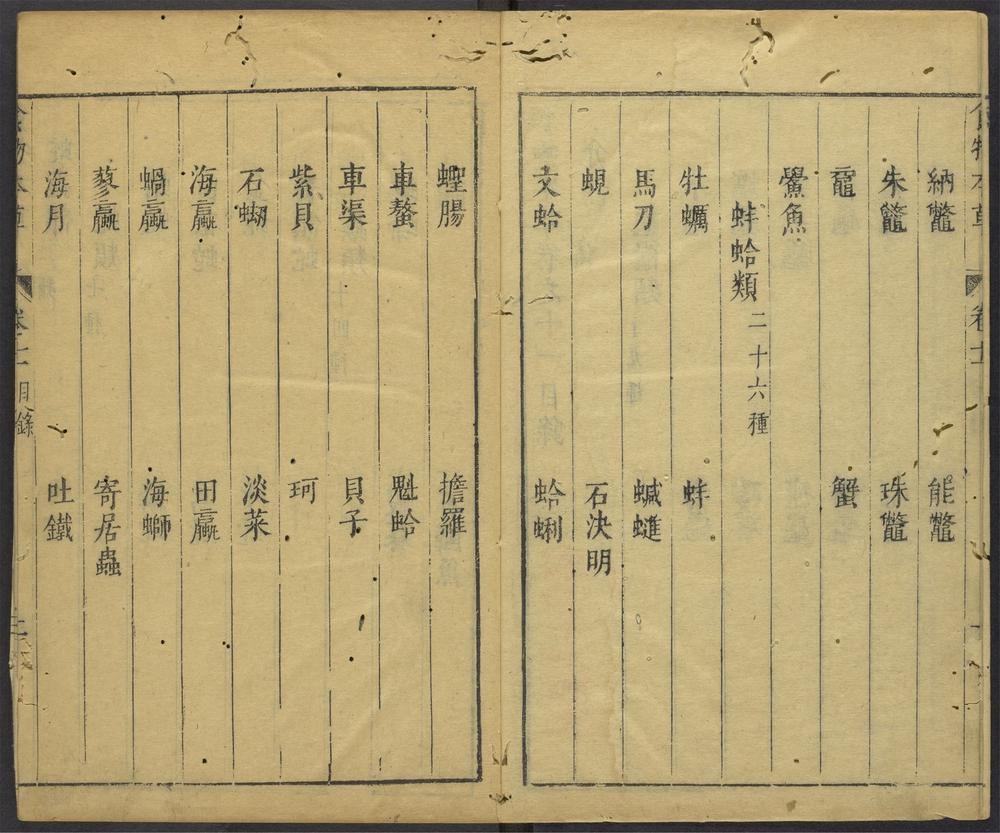 食物本草 卷十一
納鼈 能鼈
朱鼈 珠鼈
黿 蟹
鱟魚
蚌蛤類二十六種
牡蠣 蚌
馬刀 蝛䗯
蜆 石決明
文蛤 蛤蜊
蟶腸 擔羅
車螯 魁蛤
車渠 貝子
紫貝 珂
石蜐 淡菜
海蠃 田蠃
蝸蠃 海螄
蓼蠃 寄居蟲
海月 吐鐵
食物本草 卷十一 目錄